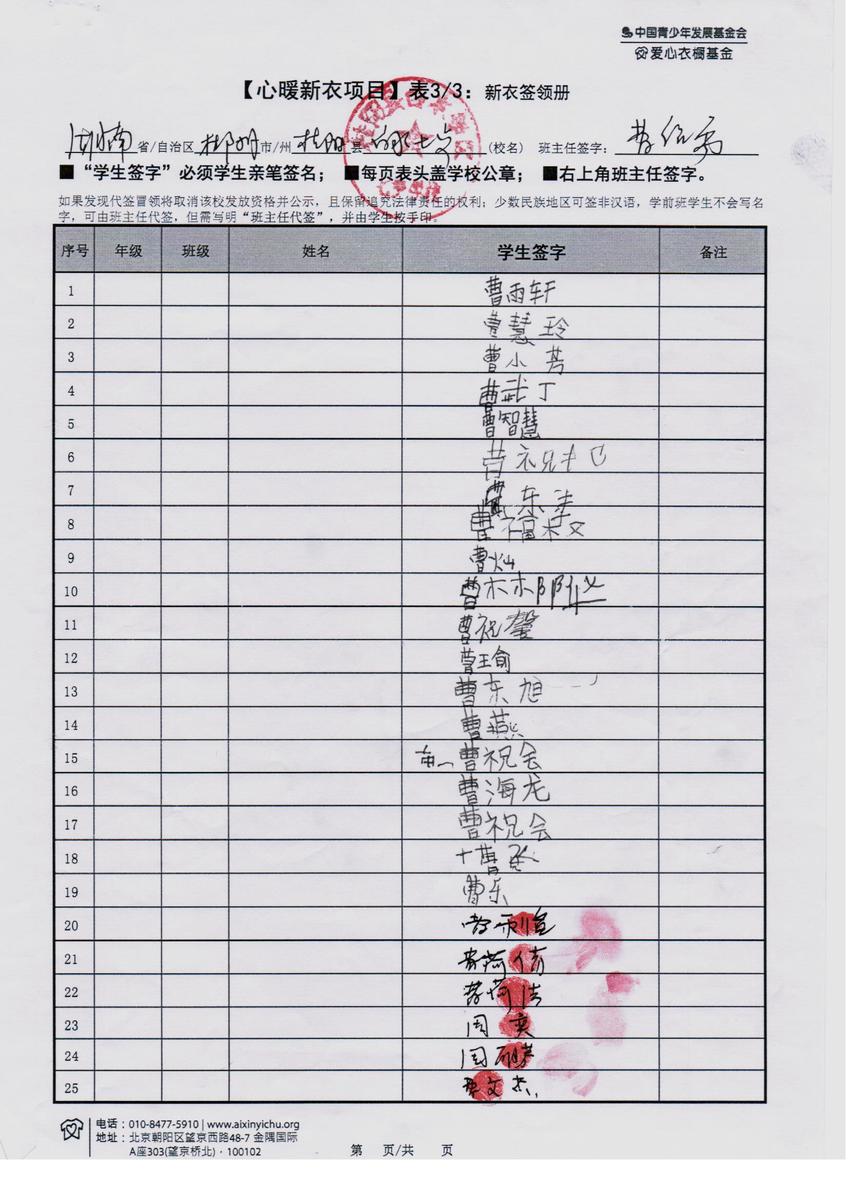 中国青少年发展基金会
爱心衣橱基金
【心暖新衣项目】表3/3：新衣签领册
湖南省/自治区 郴州市/州 桂阳县 (校名) 班主任签字：曹
■“学生签字”必须学生亲笔签名；■每页表头盖学校公章；■右上角班主任签字。
如果发现代签冒领将取消该校发放资格并公示，且保留追究法律责任的权利；少数民族地区可签非汉语，学前班学生不会写名
字，可由班主任代签，但需写明“班主任代签”，并由学生按手印。
序号 年级 班级 姓名 学生签字 备注
1 曹雨轩
2 曹慧玲
3 曹小芳
4 曹武丁
5 曹智慧
6
7 曹东
8 曹福
9 曹灿
10 曹
11 曹祝馨
12 曹王俞
13 曹东旭
14 曹燕
15 曹祝会
16 曹海龙
17 曹祝会
18 曹
19 曹乐
20
21
22
23 周奕
24 周
25 文杰
电话：010-8477-5910 | www.aixinyichu.org
地址：北京朝阳区望京西路48-7 金隅国际
A座303(望京桥北)·100102
第 页/共 页